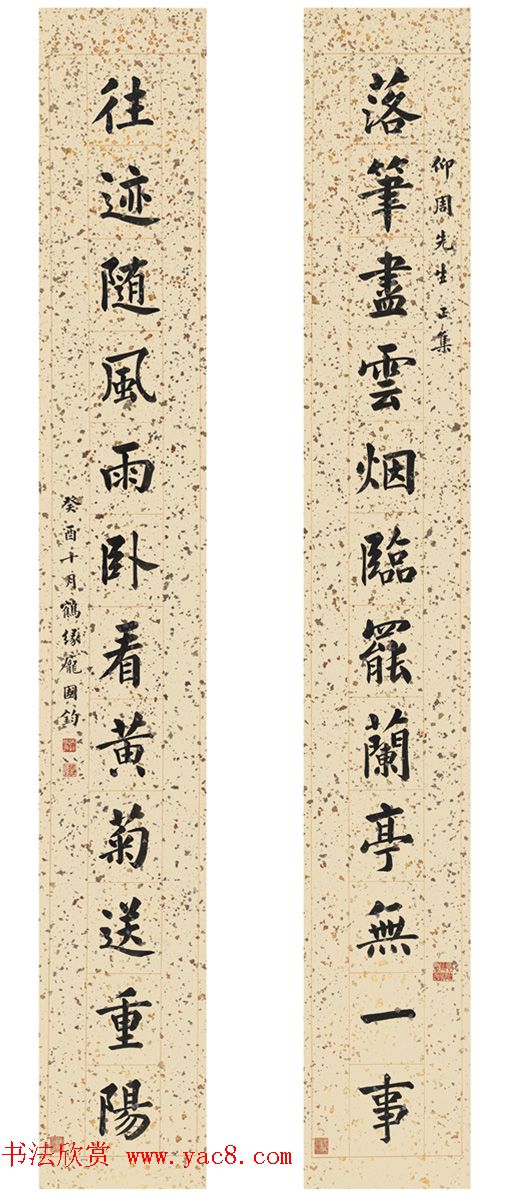 落筆盡雲烟臨罷蘭亭無一事
仰周先生正集
往迹随風雨卧看黄菊送重陽
癸酉十月鶴緣龐國鈞
书法欣赏 www.yac8.com